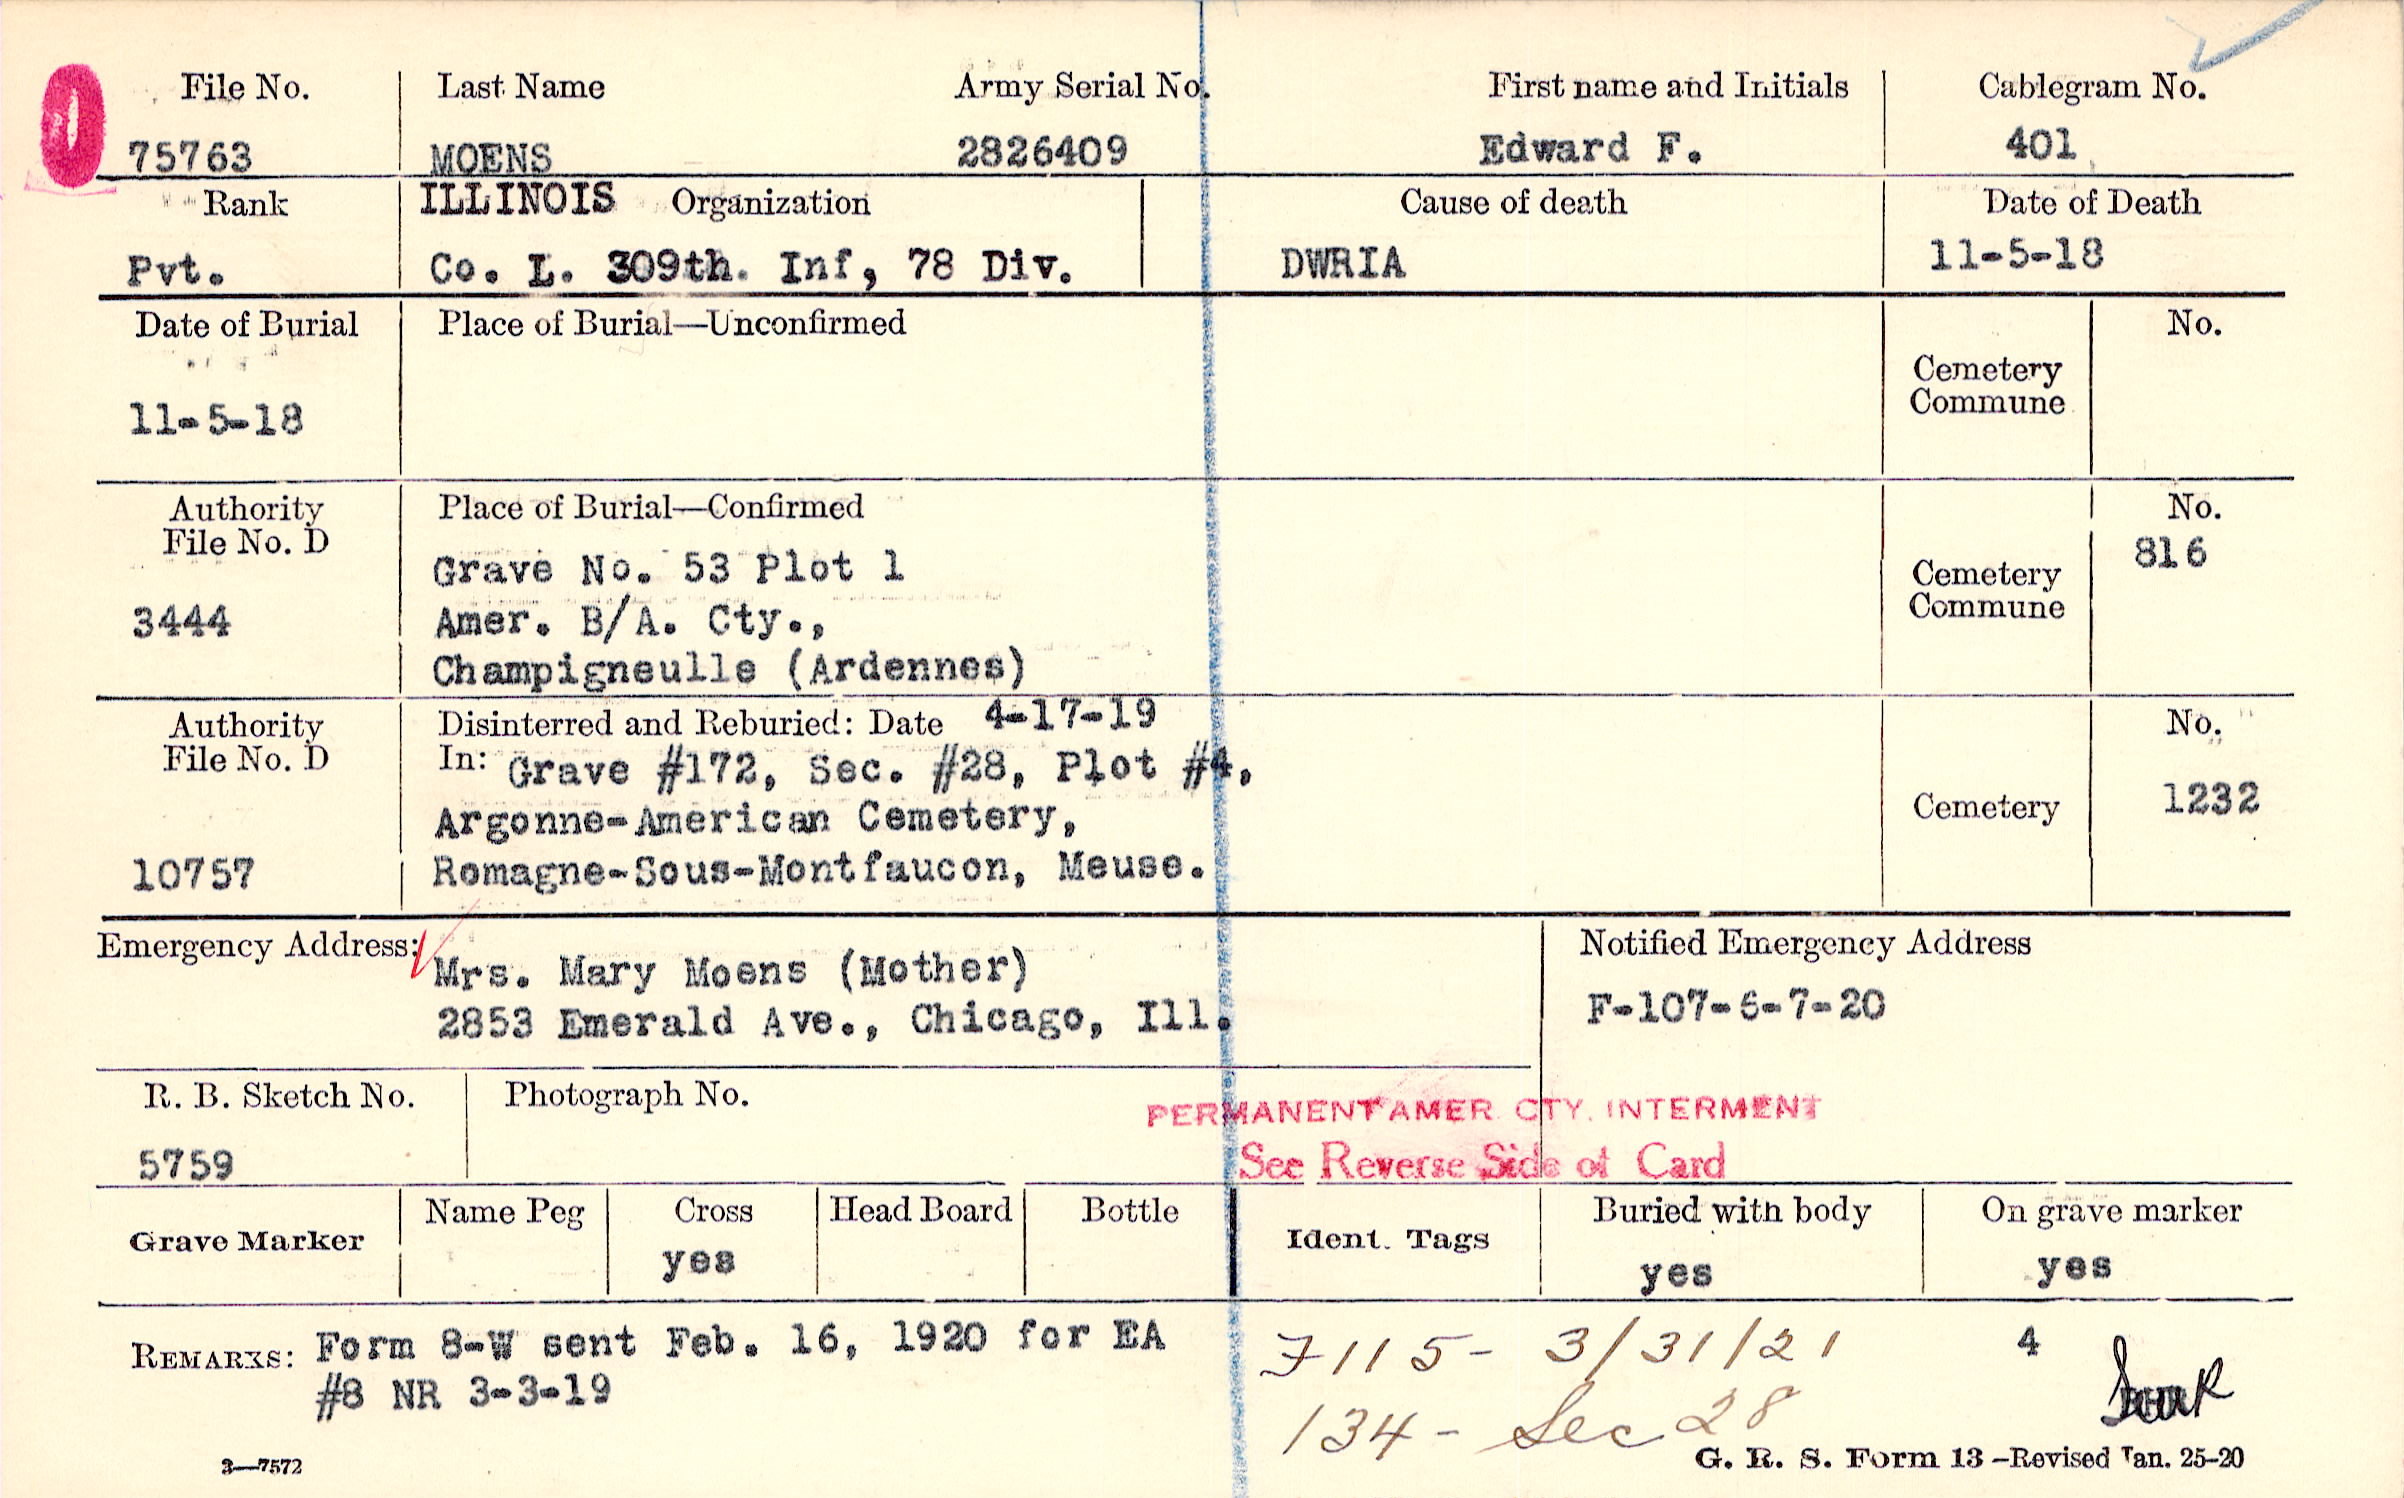 File No. Last Name Army Serial No. First name and Initials Cablegram No.
75763 MOENS 2826409 Edward F. 401
Rank ILLINOIS Organization Cause of death Date of Death
Pvt. Co. L. 309th. Inf, 78 Div. DWRIA 11-5-18
Date of Burial Place of Burial—Unconfirmed No.
Cemetery
Commune
11-5-18
Authority Place of Burial—Confirmed No.
File No. D 816
Grave No. 53 Plot 1 Cemetery
3444 Amer. B/A. Cty., Commune
Champigneulle (Ardennes)
Authority Disinterred and Reburied: Date 4-17-19 No.
File No. D In: Grave #172, Sec. #28, Plot #4,
Argonne-American Cemetery, Cemetery 1232
10757 Romagne-Sous-Montfaucon, Meuse.
Emergency Address: Notified Emergency Address
Mrs. Mary Moens (Mother)
2853 Emerald Ave., Chicago, Ill. F-107-6-7-20
R. B. Sketch No. Photograph No.
PERMANENT AMER. CTY. INTERMENT
5759 See Reverse Side of Card
Grave Marker Name Peg Cross Head Board Bottle Ident. Tags Buried with body On grave marker
yes yes yes
REMARKS: Form 8-W sent Feb. 16, 1920 for EA 7115- 3/31/21 4
#8 NR 3-3-19
134- Sec 28
3—7572 G. R. S. Form 13—Revised Jan. 25-20